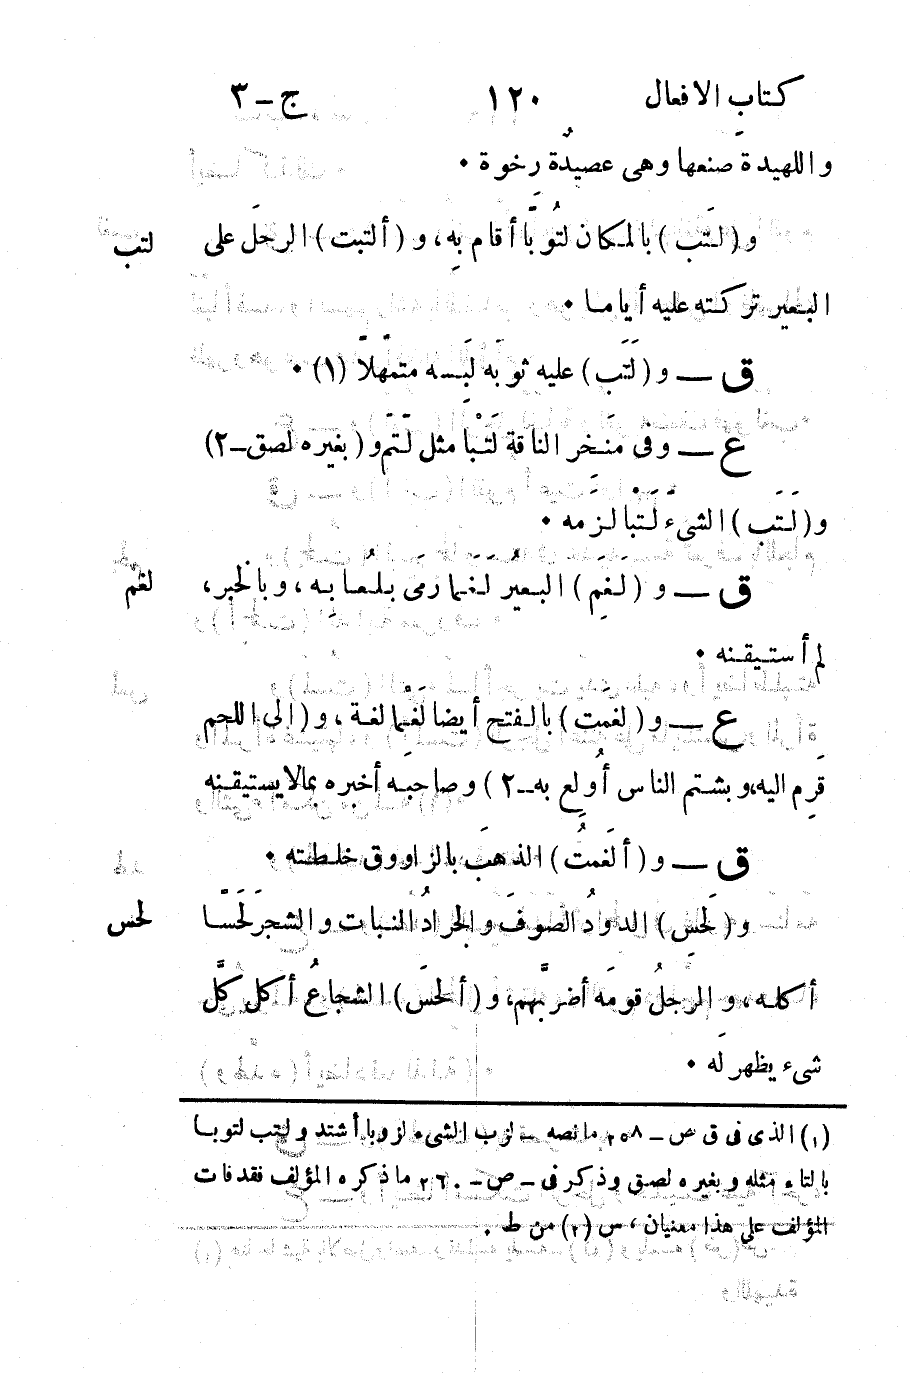 كتاب الافعال ١٢٠ ج ـ ٣
واللهيدة صنعها وهى عصيدة رخوة ٠
لتب و (لتب) بالمكان لتُوبًّا أقام بِه، و (ألتبت) الرجل على
البعير تركته عليه أياما ٠
ق ـــ و (لَتَب) عليه ثوبَه لَبِسه متمهّلا (١) ٠
ع ـــ وفى منخر الناقة لَتْبا مثل لَتَم و (بغيره لصق ـ ٢)
و (لَتَب) الشىء لَتبا لزمه ٠
لغم ق ـــ و (لغِم) البعير لغما رمى بلعابه، و بالخبر،
لم أستيقنه ٠
ع ـــ و (لغمت) بالفتح أيضا لغما لغة، و (الى اللحم
قرِم اليه، وبشتم الناس أُولِع به ـ ٢) وصاحبَه أخبره بمالا يستيقنه
ق ـــ و (ألغمتُ) الذهبَ بالزاووق خلطته ٠
لحس و (لَحِسَ) الدودُ الصوفَ والجرادُ النبات والشجرَ لَحَسًّا
أكله، و الرجلُ قومَه أضرّ بهم، و (ألحسَ) الشجاعُ أكل كلَّ
شىء يظهر لَه ٠
(١) الذى فى ق ص ـ ٢٥٨ ما نصه ـ لزب الشىء لزوبا أشتد ولتب لتوبا
بالتاء مثله وبغيره لصق وذكر فى ـ ص ـ ٢٦٠ ما ذكره المؤلف فقد فات
المؤلف على هذا معنيان، س (٢) من ط ٠